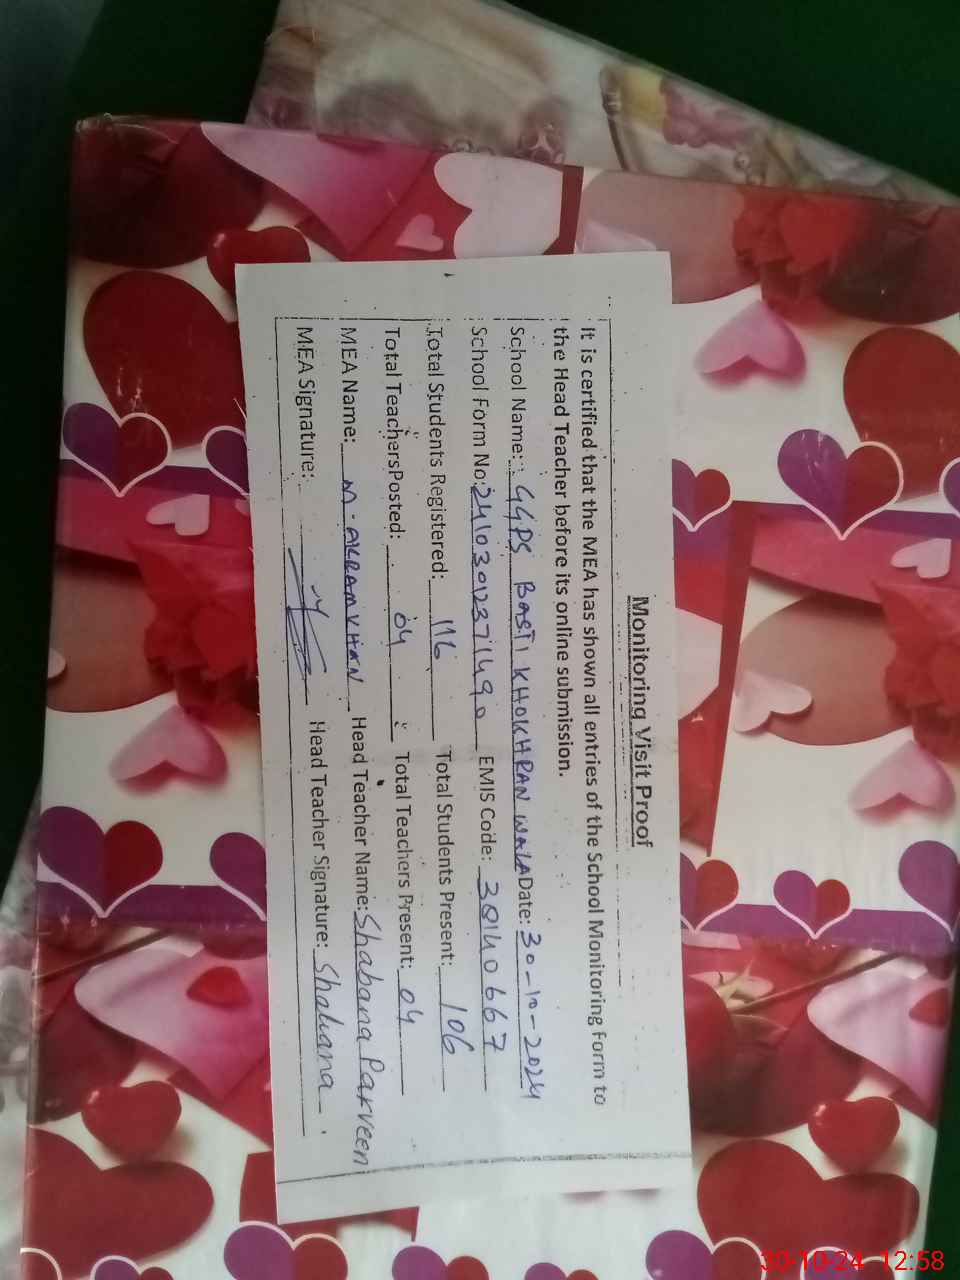 Monitoring Visit Proof
It is certified that the MEA has shown all entries of the School Monitoring Form to
the Head Teacher before its online submission.
School Name: GGPS BASTI KHOKHRAN WALA Date: 30-10-2024
School Form No: 24103012371490 EMIS Code: 30140667
Total Students Registered: 116 Total Students Present: 106
Total TeachersPosted: 04 Total Teachers Present: 04
MEA Name: M. AKRAM KHAN Head Teacher Name: Shabana Parveen
MEA Signature: Head Teacher Signature: Shabana
30-10-24 12:58